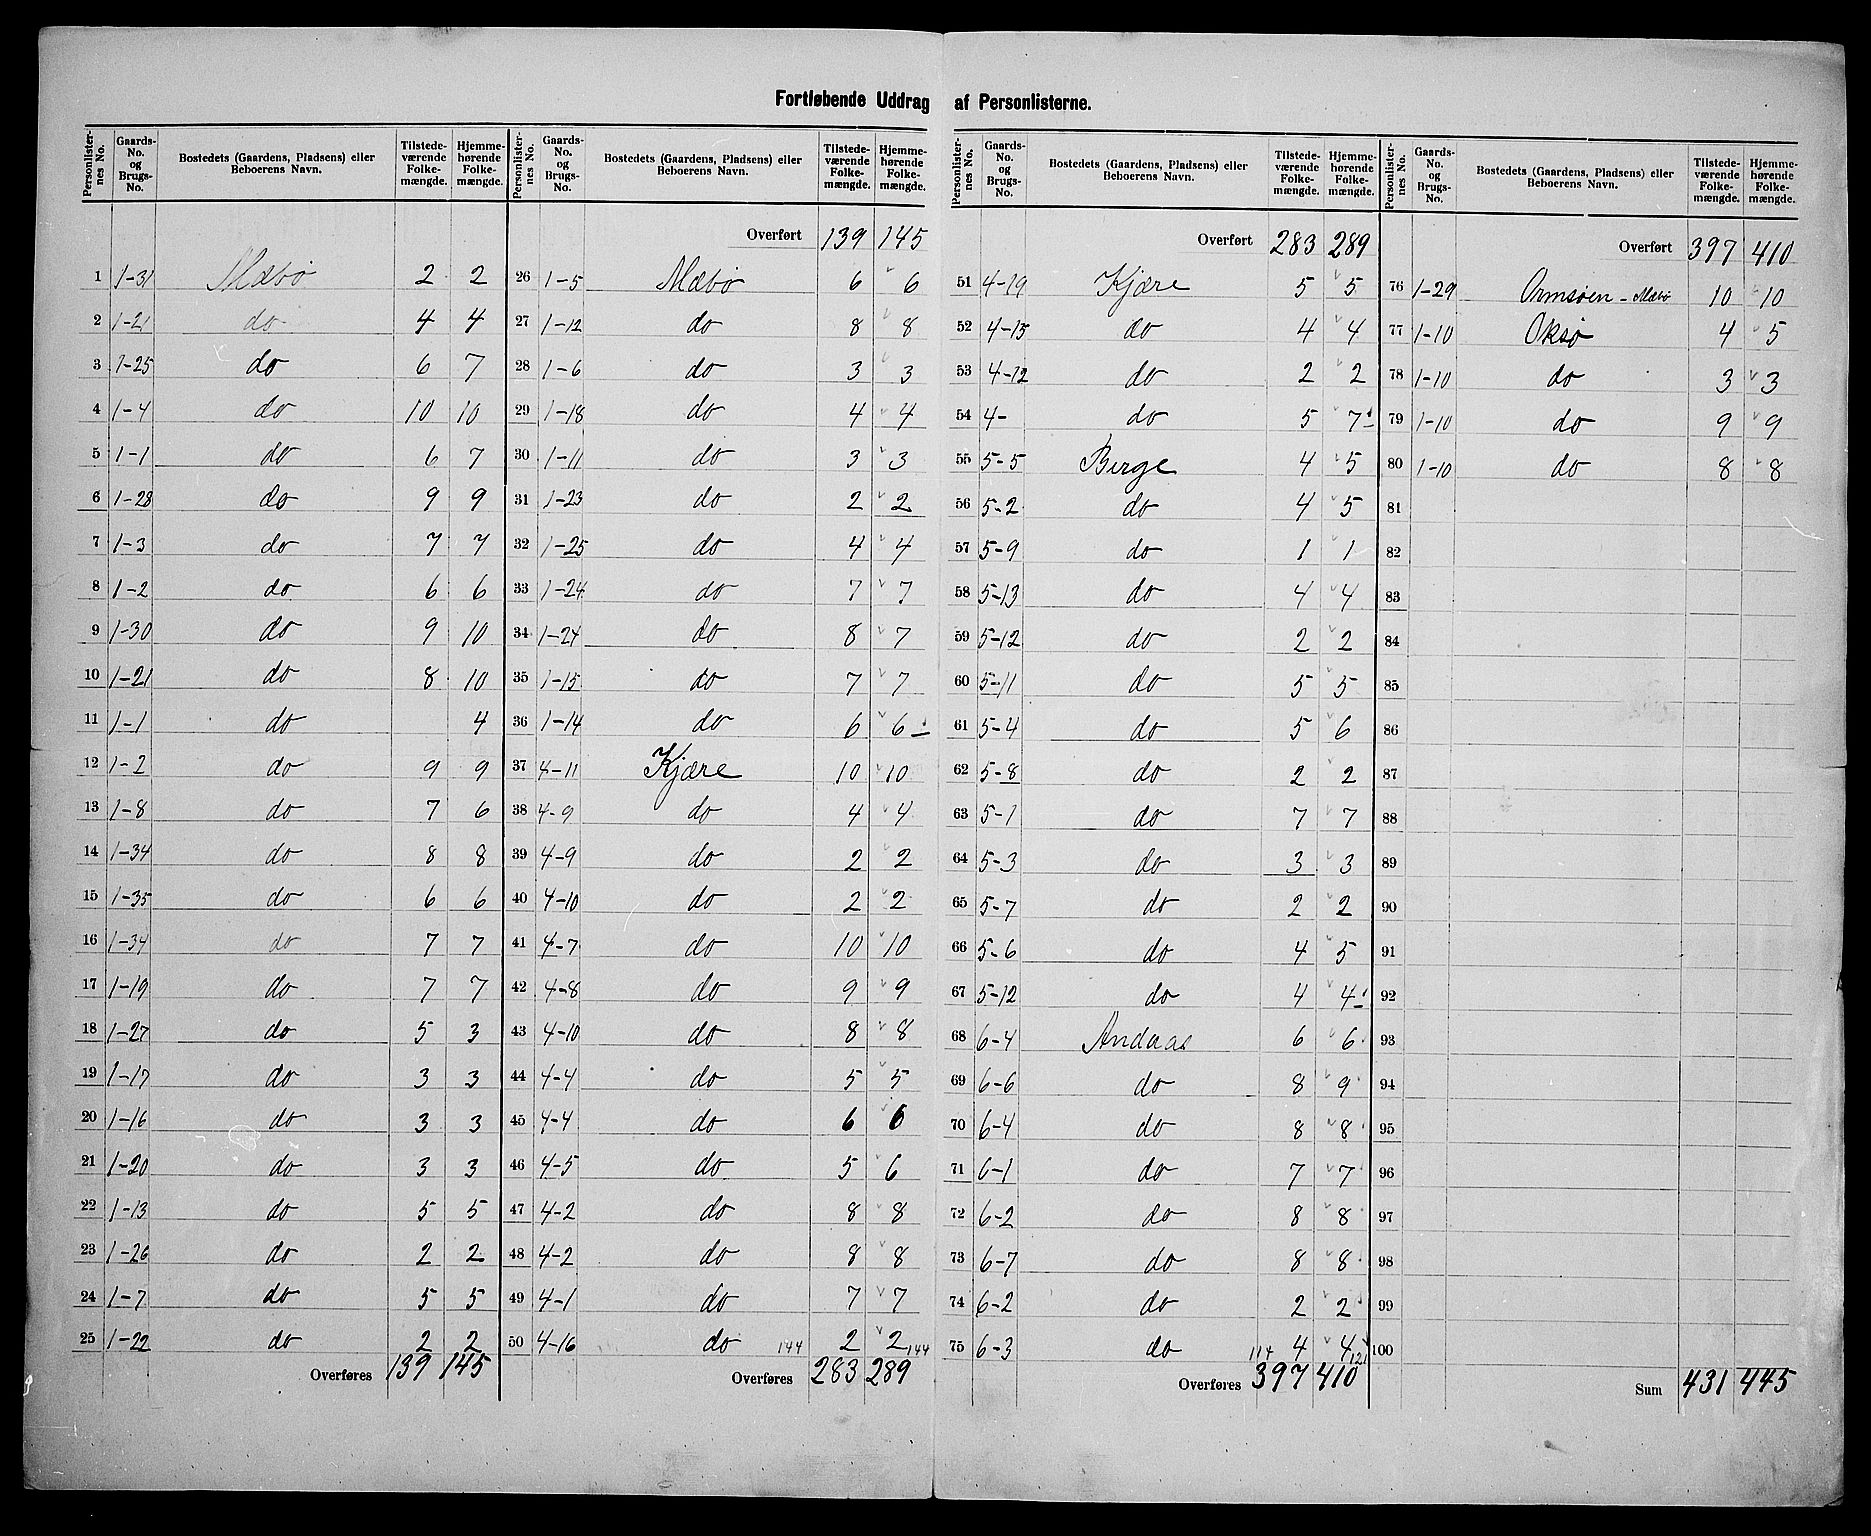 Fortløbende Uddrag af Personlisterne.
Personlister-nes No. | Gaards-No. og Brugs-No. | Bostedets (Gaardens, Pladsens) eller Beboerens Navn. | Tilstede-værende Folke-mængde. | Hjemme-hørende Folke-mængde.
1 | 1-31 | Mæbø | 2 | 2
2 | 1-21 | do | 4 | 4
3 | 1-25 | do | 6 | 7
4 | 1-4 | do | 10 | 10
5 | 1-1 | do | 6 | 7
6 | 1-28 | do | 9 | 9
7 | 1-3 | do | 7 | 7
8 | 1-2 | do | 6 | 6
9 | 1-30 | do | 9 | 10
10 | 1-21 | do | 8 | 10
11 | 1-1 | do | | 4
12 | 1-2 | do | 9 | 9
13 | 1-8 | do | 7 | 6
14 | 1-34 | do | 8 | 8
15 | 1-35 | do | 6 | 6
16 | 1-34 | do | 7 | 7
17 | 1-19 | do | 7 | 7
18 | 1-27 | do | 5 | 3
19 | 1-17 | do | 3 | 3
20 | 1-16 | do | 3 | 3
21 | 1-20 | do | 3 | 3
22 | 1-13 | do | 5 | 5
23 | 1-26 | do | 2 | 2
24 | 1-7 | do | 5 | 5
25 | 1-22 | do | 2 | 2
Overføres 139 145
Personlister-nes No. | Gaards-No. og Brugs-No. | Bostedets (Gaardens, Pladsens) eller Beboerens Navn. | Tilstede-værende Folke-mængde. | Hjemme-hørende Folke-mængde.
Overført 139 145
26 | 1-5 | Mæbø | 6 | 6
27 | 1-12 | do | 8 | 8
28 | 1-6 | do | 3 | 3
29 | 1-18 | do | 4 | 4
30 | 1-11 | do | 3 | 3
31 | 1-23 | do | 2 | 2
32 | 1-25 | do | 4 | 4
33 | 1-24 | do | 7 | 7
34 | 1-24 | do | 8 | 7
35 | 1-15 | do | 7 | 7
36 | 1-14 | do | 6 | 6
37 | 4-11 | Kjære | 10 | 10
38 | 4-9 | do | 4 | 4
39 | 4-9 | do | 2 | 2
40 | 4-10 | do | 2 | 2
41 | 4-7 | do | 10 | 10
42 | 4-8 | do | 9 | 9
43 | 4-10 | do | 8 | 8
44 | 4-4 | do | 5 | 5
45 | 4-4 | do | 6 | 6
46 | 4-5 | do | 5 | 6
47 | 4-2 | do | 8 | 8
48 | 4-2 | do | 8 | 8
49 | 4-1 | do | 7 | 7
50 | 4-16 | do 144 | 2 | 2 144
Overføres 283 289
Personlister-nes No. | Gaards-No. og Brugs-No. | Bostedets (Gaardens, Pladsens) eller Beboerens Navn. | Tilstede-værende Folke-mængde. | Hjemme-hørende Folke-mængde.
Overført 283 289
51 | 4-19 | Kjære | 5 | 5
52 | 4-15 | do | 4 | 4
53 | 4-12 | do | 2 | 2
54 | 4- | do | 5 | 7
55 | 5-5 | Berge | 4 | 5
56 | 5-2 | do | 4 | 5
57 | 5-9 | do | 1 | 1
58 | 5-13 | do | 4 | 4
59 | 5-12 | do | 2 | 2
60 | 5-11 | do | 5 | 5
61 | 5-4 | do | 5 | 6
62 | 5-8 | do | 2 | 2
63 | 5-1 | do | 7 | 7
64 | 5-3 | do | 3 | 3
65 | 5-7 | do | 2 | 2
66 | 5-6 | do | 4 | 5
67 | 5-12 | do | 4 | 4
68 | 6-4 | Andaas | 6 | 6
69 | 6-6 | do | 8 | 9
70 | 6-4 | do | 8 | 8
71 | 6-1 | do | 7 | 7
72 | 6-2 | do | 8 | 8
73 | 6-7 | do | 8 | 8
74 | 6-2 | do | 2 | 2
75 | 6-3 | do 114 | 4 | 4 121
Overføres 397 410
Personlister-nes No. | Gaards-No. og Brugs-No. | Bostedets (Gaardens, Pladsens) eller Beboerens Navn. | Tilstede-værende Folke-mængde. | Hjemme-hørende Folke-mængde.
Overført 397 410
76 | 1-29 | Ormsøen - Mæbø | 10 | 10
77 | 1-10 | Oksø | 4 | 5
78 | 1-10 | do | 3 | 3
79 | 1-10 | do | 9 | 9
80 | 1-10 | do | 8 | 8
81
82
83
84
85
86
87
88
89
90
91
92
93
94
95
96
97
98
99
100
Sum 431 445